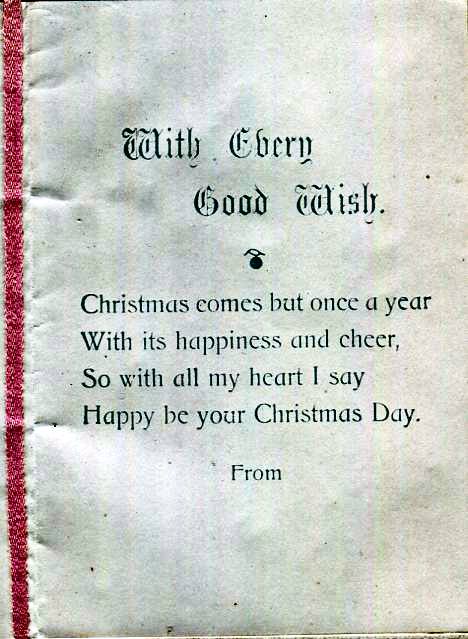 With Every
Good Wish.
Christmas comes but once a year
With its happiness and cheer,
So with all my heart I say
Happy be your Christmas Day.
From